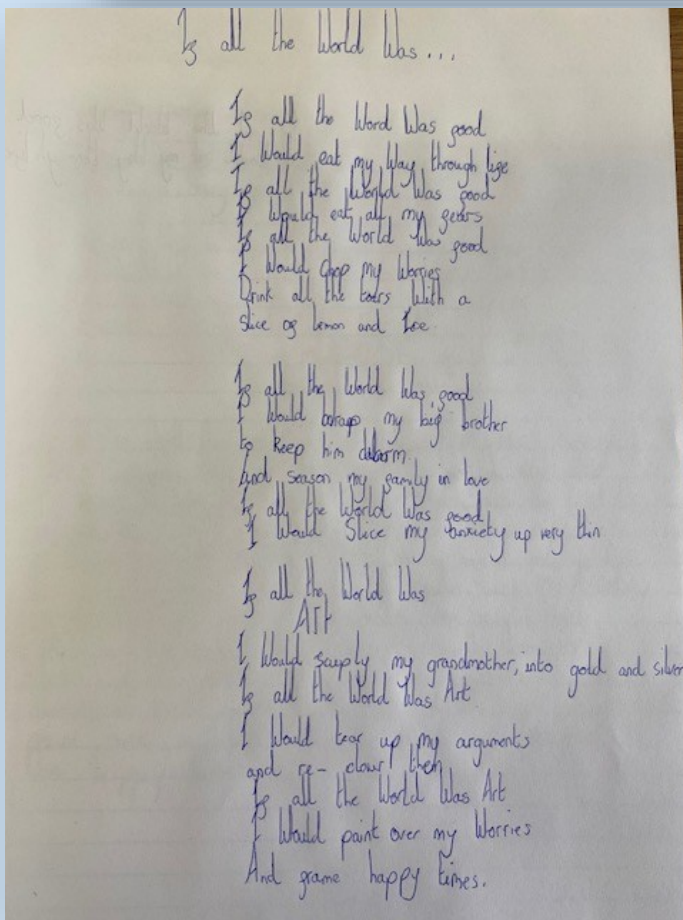 If all the World Was...
If all the Word Was good
I Would eat my Way through life
If all the World Was good
I Would eat all my fears
If all the World Was good
I Would chop my Worries
Drink all the tears With a
Slice of lemon and Ice
If all the World Was good
I Would my big brother
to keep him
And season my family in love
If all the World Was good
I Would Slice my anxiety up very thin
If all the World Was
Art
I Would my grandmother, into gold and silver
If all the World Was Art
I Would tear up my arguments
and re-colour them
If all the World Was Art
I Would paint over my Worries
And frame happy times.